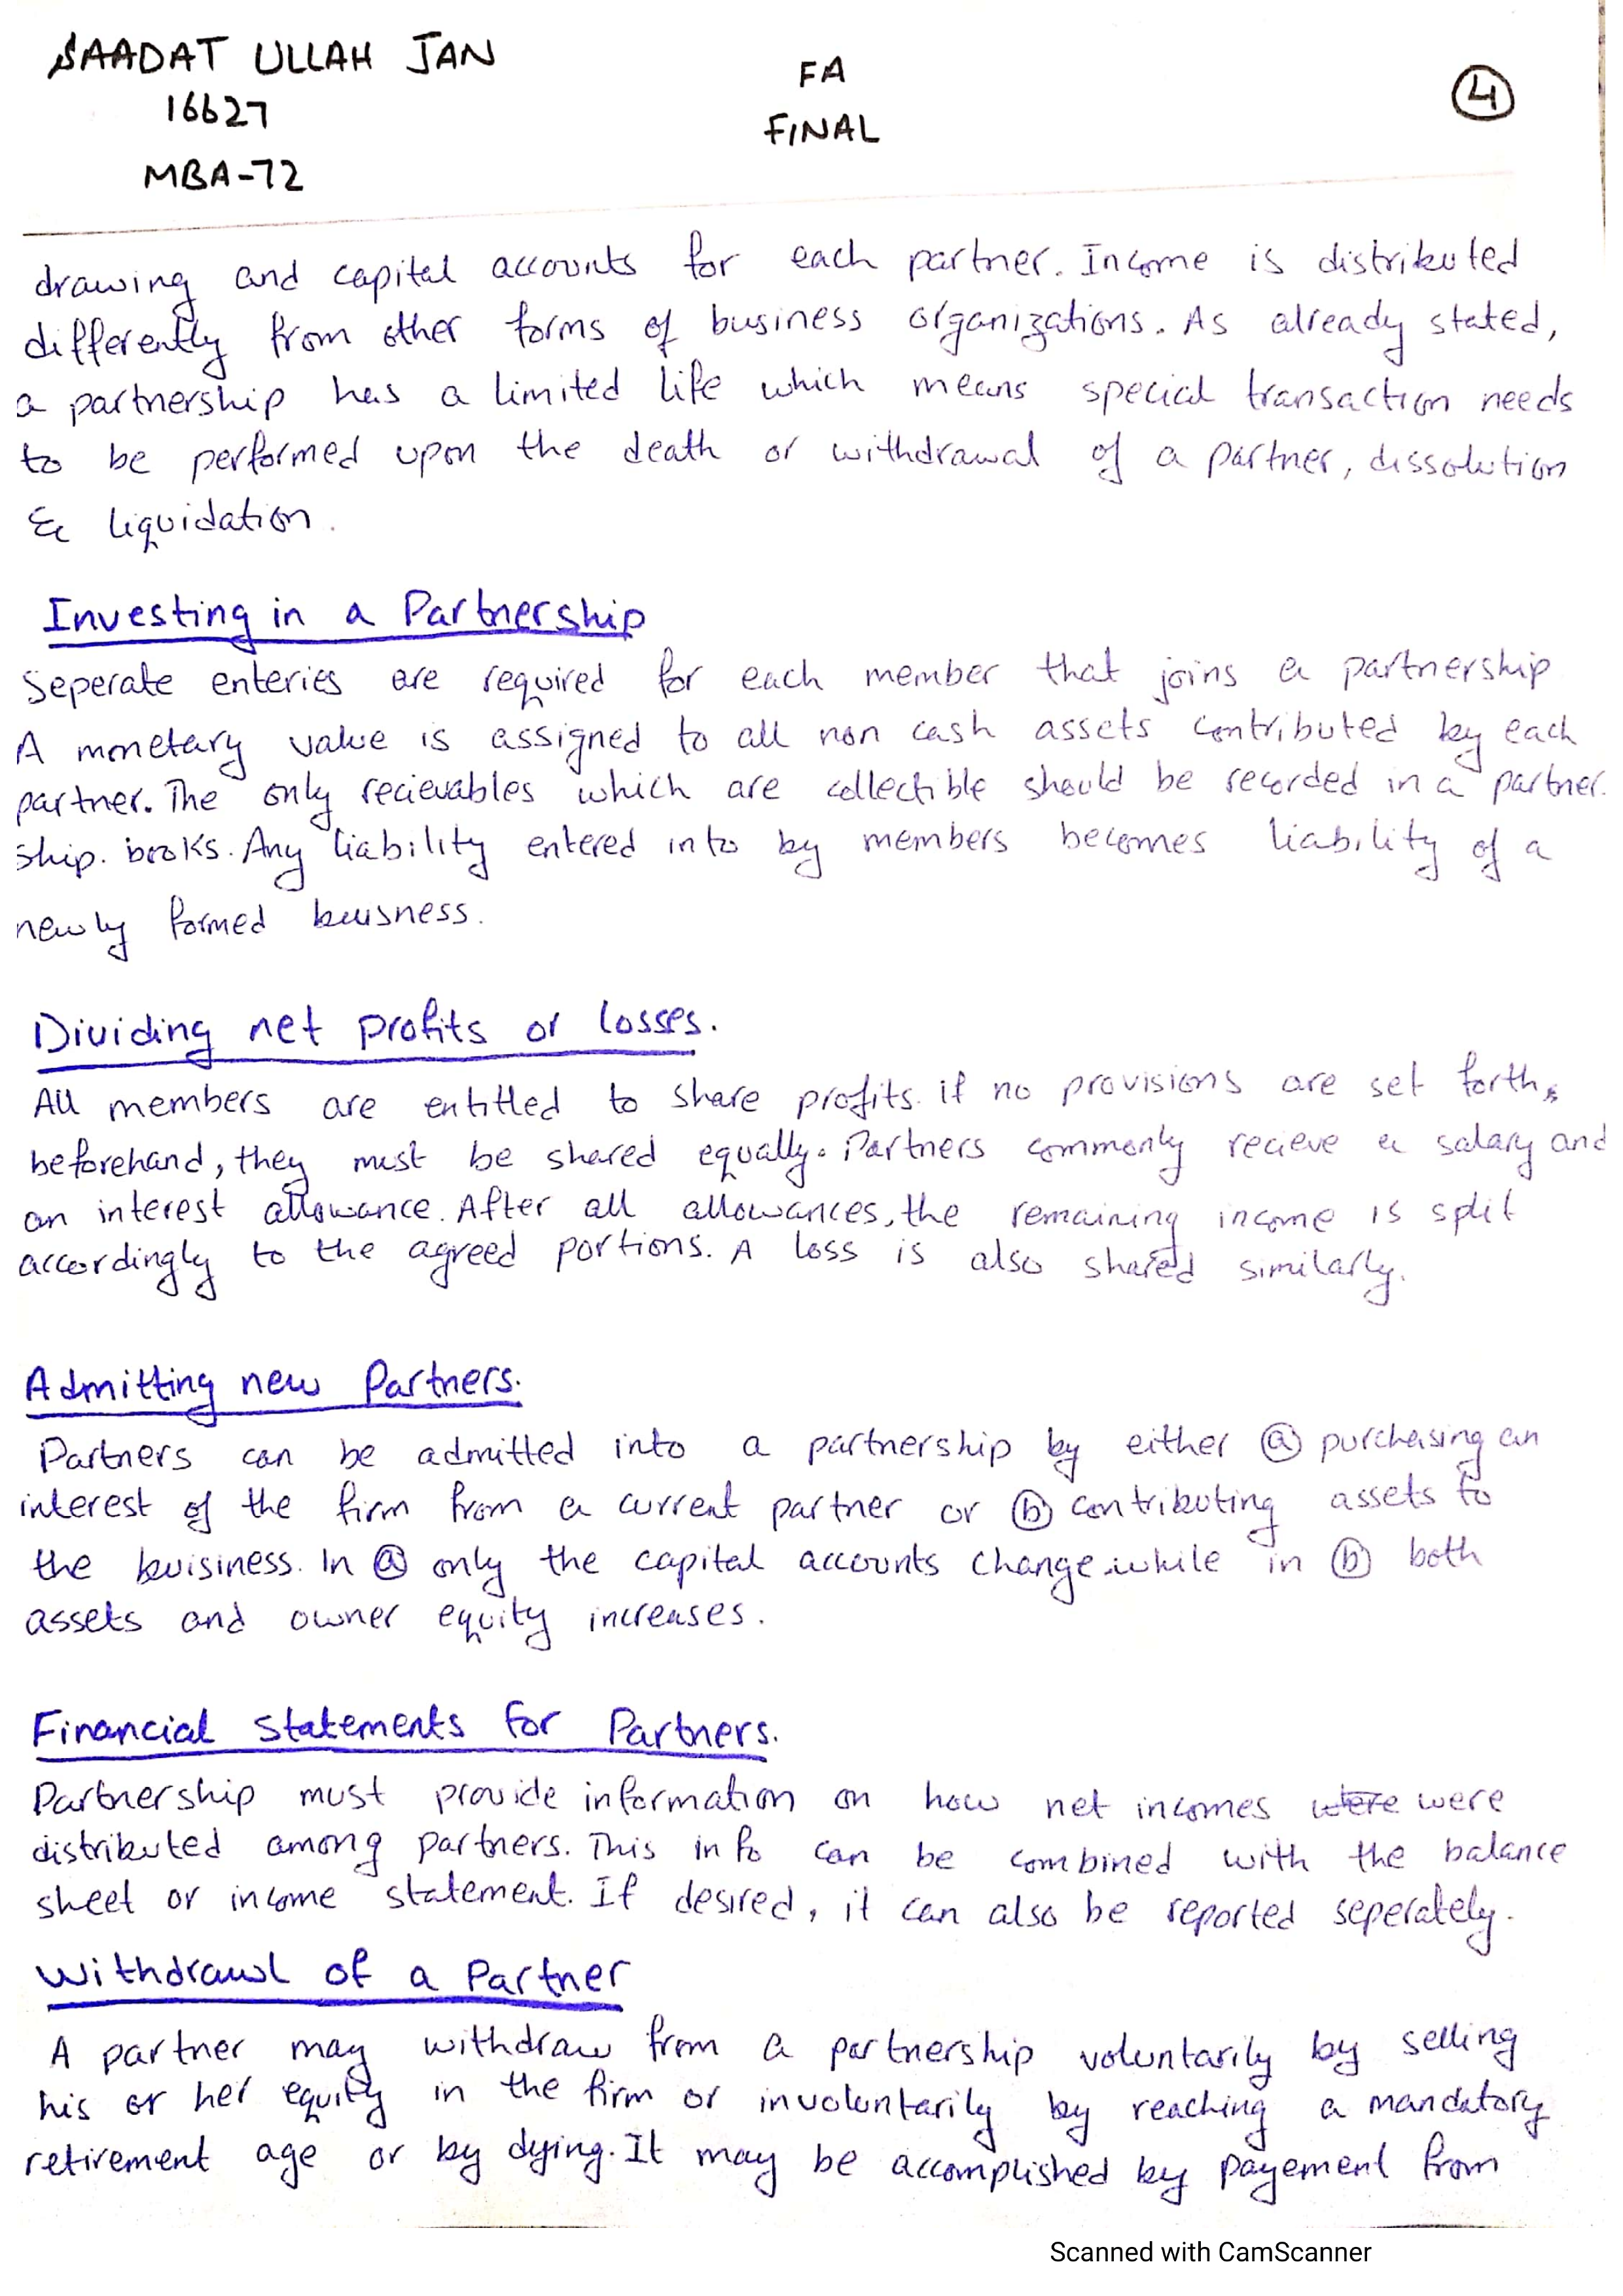 SAADAT ULLAH JAN
16627
MBA-72
FA
FINAL
4
drawing and capital accounts for each partner. Income is distributed
differently from other forms of business organizations. As already stated,
a partnership has a limited life which means special transaction needs
to be performed upon the death or withdrawal of a partner, dissolution
& liquidation.
Investing in a Partnership
Seperate enteries are required for each member that joins a partnership
A monetary value is assigned to all non cash assets contributed by each
partner. The only recievables which are collectible should be recorded in a partner.
ship. books. Any liability entered into by members becomes liability of a
newly formed buisness.
Dividing net profits or losses.
All members are entitled to share profits. if no provisions are set forth,
beforehand, they must be shared equally. Partners commonly recieve a salary and
an interest allowance. After all allowances, the remaining income is split
accordingly to the agreed portions. A loss is also shared similarly.
Admitting new Partners.
Partners can be admitted into a partnership by either (a) purchasing an
interest of the firm from a current partner or (b) contributing assets to
the buisiness. In (a) only the capital accounts change while in (b) both
assets and owner equity increases.
Financial statements for Partners.
Partnership must provide information on how net incomes were were
distributed among partners. This info can be combined with the balance
sheet or income statement. If desired, it can also be reported seperately.
Withdrawl of a Partner
A partner may withdraw from a partnership voluntarily by selling
his or her equity in the firm or involuntarily by reaching a mandatory
retirement age or by dying. It may be accomplished by payement from
Scanned with CamScanner